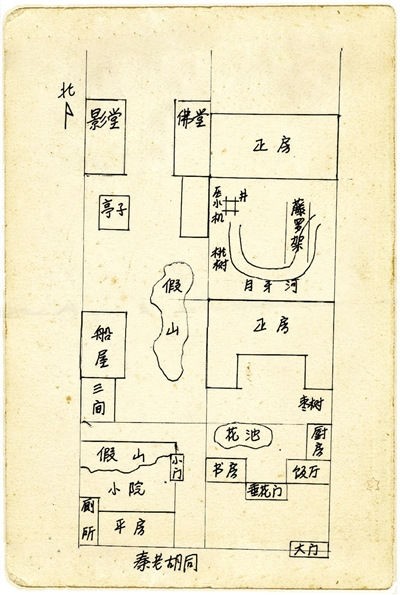 北
影堂
佛堂
正房
亭子
压水机
井
藤罗架
桃树
月牙河
假山
船屋
正房
三间
枣树
花池
厨房
假山
小门
书房
饭厅
垂花门
小院
厕所
平房
大门
秦老胡同